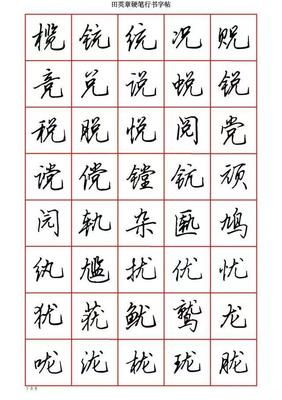 田英章硬笔行书字帖
榄 铳 统 况 贶
竞 兑 说 蜕 锐
税 脱 悦 阅 党
谠 傥 镗 钪 顽
闶 轨 杂 匦 鸠
纨 尴 扰 优 忧
犹 莸 鱿 鹫 龙
咙 泷 栊 珑 胧